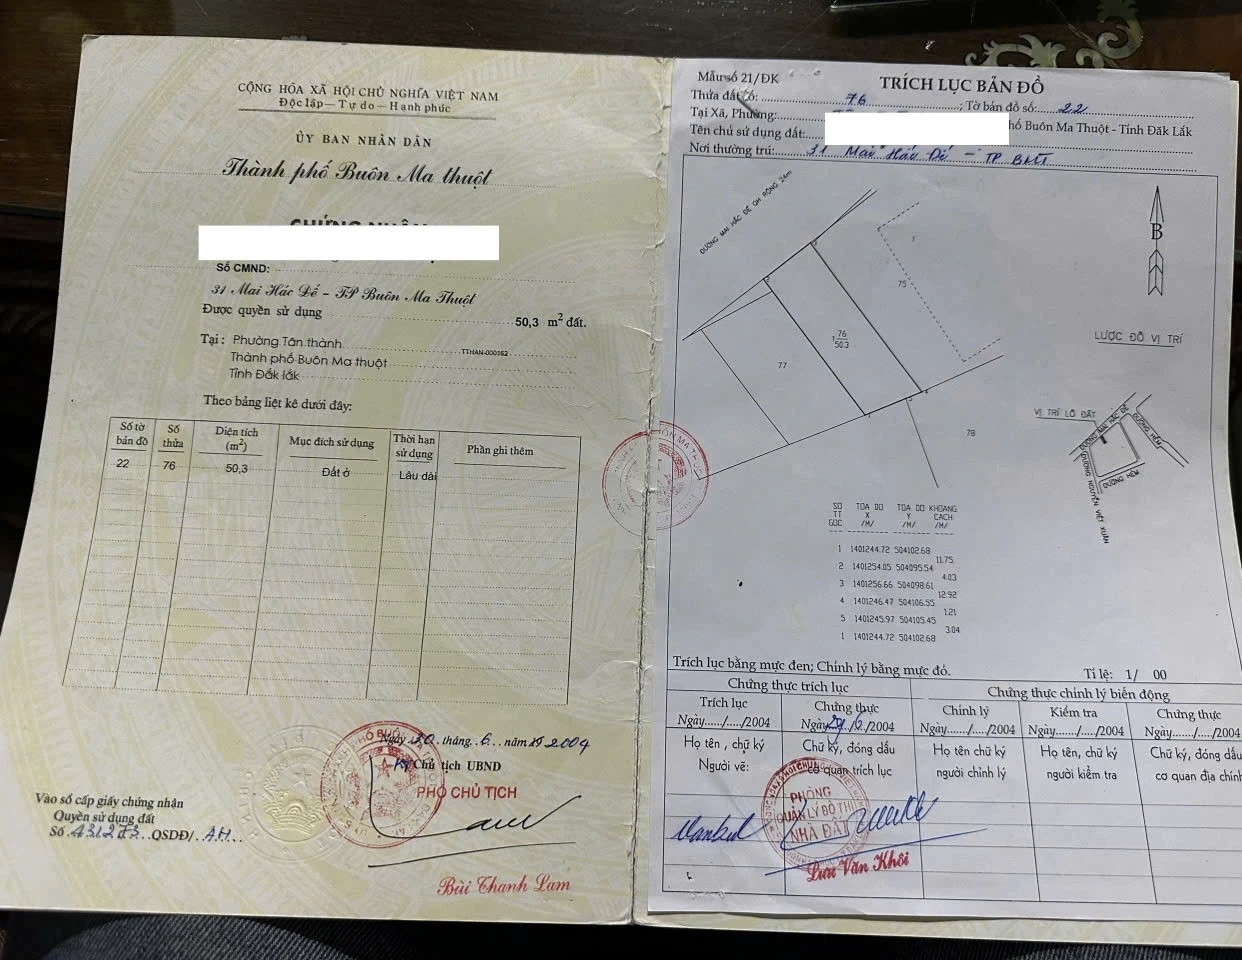 CỘNG HÒA XÃ HỘI CHỦ NGHĨA VIỆT NAM
Độc lập — Tự do — Hạnh phúc
ỦY BAN NHÂN DÂN
Thành phố Buôn Ma thuột
CHỨNG NHẬN
Số CMND:
31 Mai Hắc Đế - TP Buôn Ma Thuột
Được quyền sử dụng 50,3 m2 đất.
Tại: Phường Tân thành TTHAN-000162
Thành phố Buôn Ma thuột
Tỉnh Đắk lắk
Theo bảng liệt kê dưới đây:
Số tờ bản đồ Số thửa Diện tích (m2) Mục đích sử dụng Thời hạn sử dụng Phần ghi thêm
22 76 50,3 Đất ở Lâu dài
Ngày 30 tháng 6 năm 2004
Chủ tịch UBND
PHÓ CHỦ TỊCH
Vào sổ cấp giấy chứng nhận
Quyền sử dụng đất
Số QSDĐ/
Bùi Thanh Lam
Mẫu số 21/ĐK
TRÍCH LỤC BẢN ĐỒ
Thửa đất số: 76 ; Tờ bản đồ số: 22
Tại Xã, Phường: hố Buôn Ma Thuột - Tỉnh Đăk Lắk
Tên chủ sử dụng đất:
Nơi thường trú: 31 Mai Hắc Đế - TP BMT
ĐƯỜNG MAI HẮC ĐẾ QH RỘNG 24m
B
75
76
50.3
77
78
LƯỢC ĐỒ VỊ TRÍ
VỊ TRÍ LÔ ĐẤT
ĐƯỜNG MAI HẮC ĐẾ
ĐƯỜNG HẺM
ĐƯỜNG HẺM
ĐƯỜNG NGUYỄN VIẾT XUÂN
SO TT GOC TOA DO X /M/ TOA DO Y /M/ KHOANG CACH /M/
1 1401244.72 504102.68
11.75
2 1401254.05 504095.54
4.03
3 1401256.66 504098.61
12.92
4 1401246.47 504106.55
1.21
5 1401245.97 504105.45
3.04
1 1401244.72 504102.68
Trích lục bằng mực đen; Chỉnh lý bằng mực đỏ.
Tỉ lệ: 1/ 00
Chứng thực trích lục
Chứng thực chỉnh lý biến động
Trích lục
Ngày...../...../2004
Chứng thực
Ngày 29/6/2004
Chỉnh lý
Ngày...../...../2004
Kiểm tra
Ngày...../...../2004
Chứng thực
Ngày...../...../2004
Họ tên , chữ ký
Người vẽ:
Chữ ký, đóng dấu
cơ quan trích lục
Họ tên chữ ký
người chỉnh lý
Họ tên, chữ ký
người kiểm tra
Chữ ký, đóng dấu
cơ quan địa chính
PHÒNG
QUẢN LÝ ĐÔ THỊ
NHÀ ĐẤT
Lưu Văn Khôi